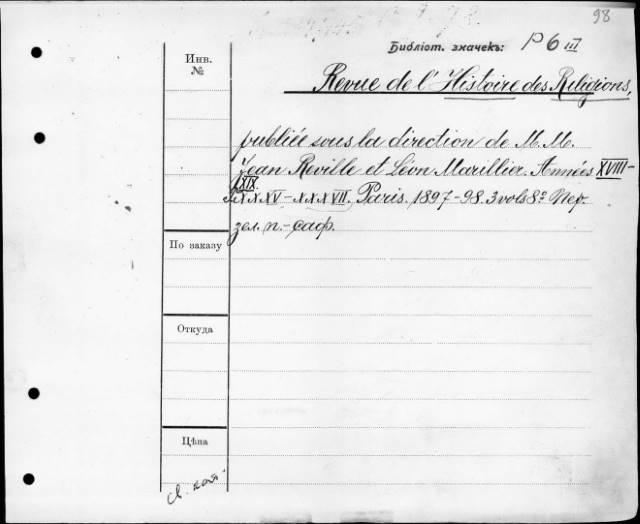 98
Библiот. значекъ: P 6 III
Инв.
№
Revue de l'Histoire des Religions,
publiée sous la direction de M. M.
Jean Reville et Léon Marillier. Années XVIII-
XIX.
XXXV-XXXVII. Paris. 1897-98. 3 vols 8º Пер.
зел. п.-саф.
По заказу
Откуда
Цѣна